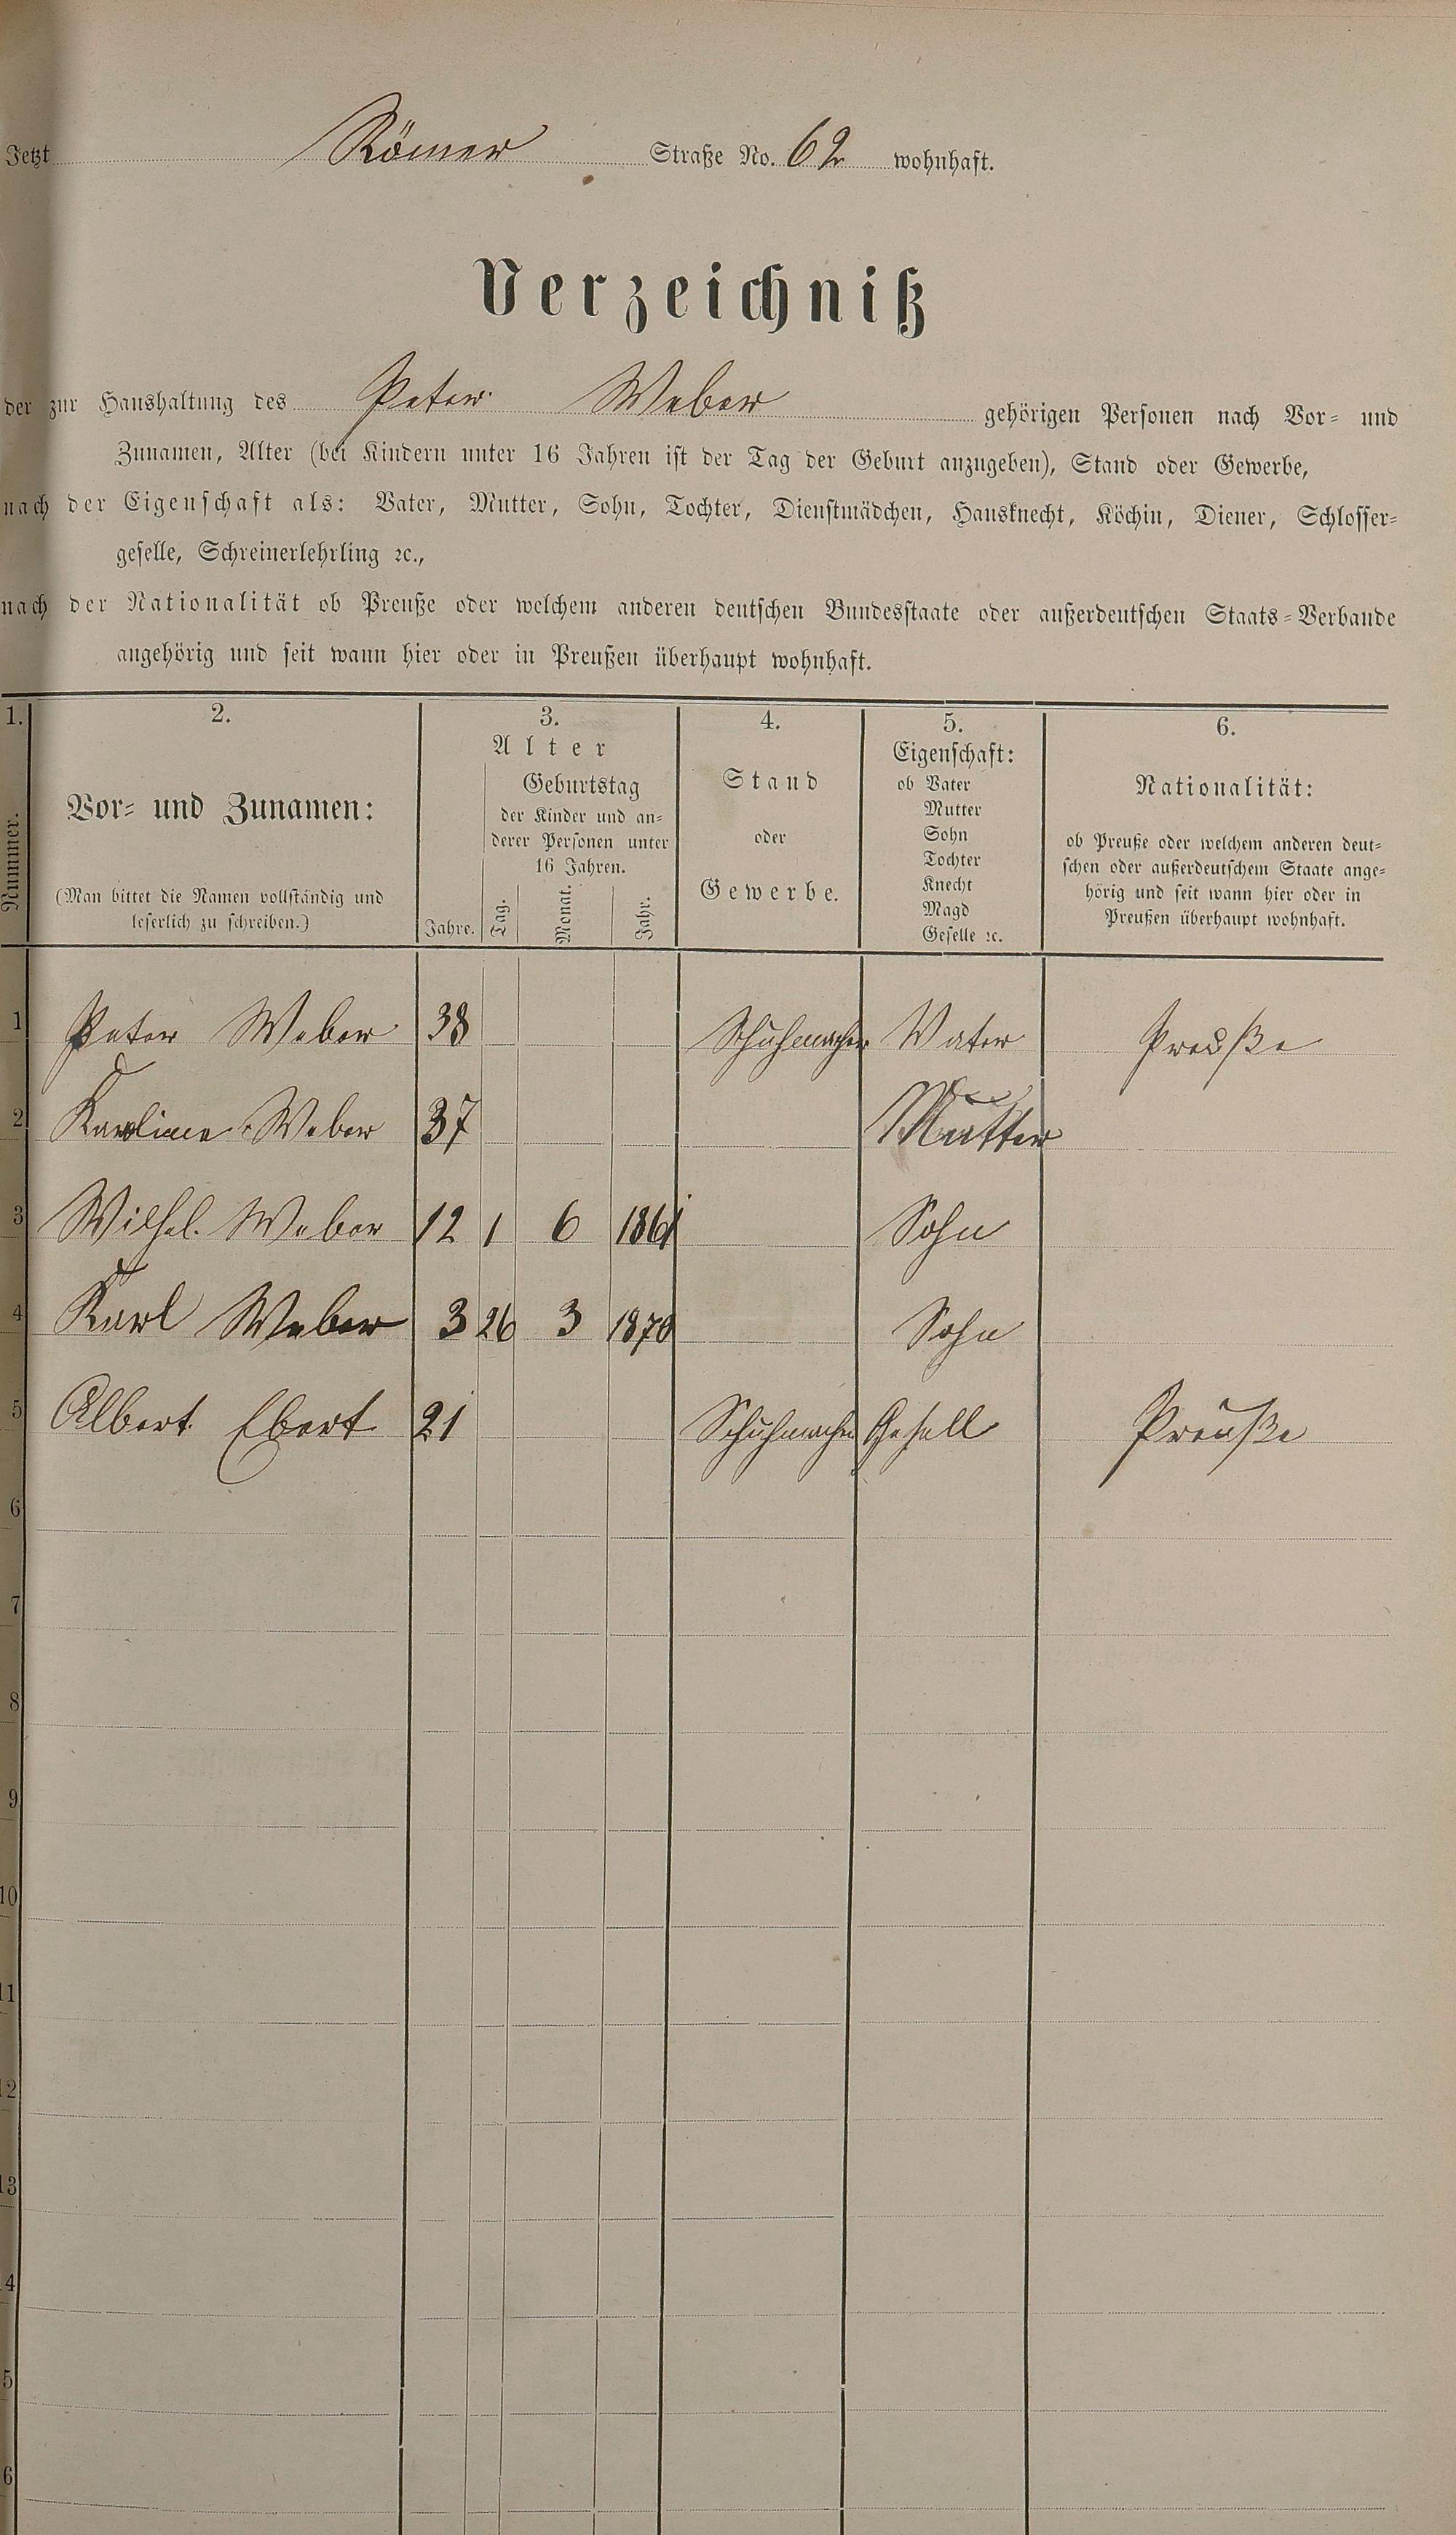 Jetzt Römer Straße No. 62 wohnhaft.
Verzeichniß
der zur Haushaltung des Peter Weber gehörigen Personen nach Vor- und
Zunamen, Alter (bei Kindern unter 16 Jahren ist der Tag der Geburt anzugeben), Stand oder Gewerbe,
nach der Eigenschaft als: Vater, Mutter, Sohn, Tochter, Dienstmädchen, Hausknecht, Köchin, Diener, Schlosser-
geselle, Schreinerlehrling ꝛc.,
nach der Nationalität ob Preuße oder welchem anderen deutschen Bundesstaate oder außerdeutschen Staats-Verbande
angehörig und seit wann hier oder in Preußen überhaupt wohnhaft.
1. 2. 3. 4. 5. 6.
Nummer.
Vor- und Zunamen:
(Man bittet die Namen vollständig und
leserlich zu schreiben.)
Alter
Jahre.
Geburtstag
der Kinder und an-
derer Personen unter
16 Jahren.
Tag. Monat. Jahr.
Stand
oder
Gewerbe.
Eigenschaft:
ob Vater
Mutter
Sohn
Tochter
Knecht
Magd
Geselle ꝛc.
Nationalität:
ob Preuße oder welchem anderen deut-
schen oder außerdeutschem Staate ange-
hörig und seit wann hier oder in
Preußen überhaupt wohnhaft.
1 Peter Weber 38 Schuhmacher Vater Preuße
2 Karoline Weber 37 Mutter
3 Wilhel. Weber 12 1 6 1861 Sohn
4 Karl Weber 3 26 3 1870 Sohn
5 Albert Ebert 21 Schuhmacher Gesell Preuße
6
7
8
9
10
11
12
13
4
5
6